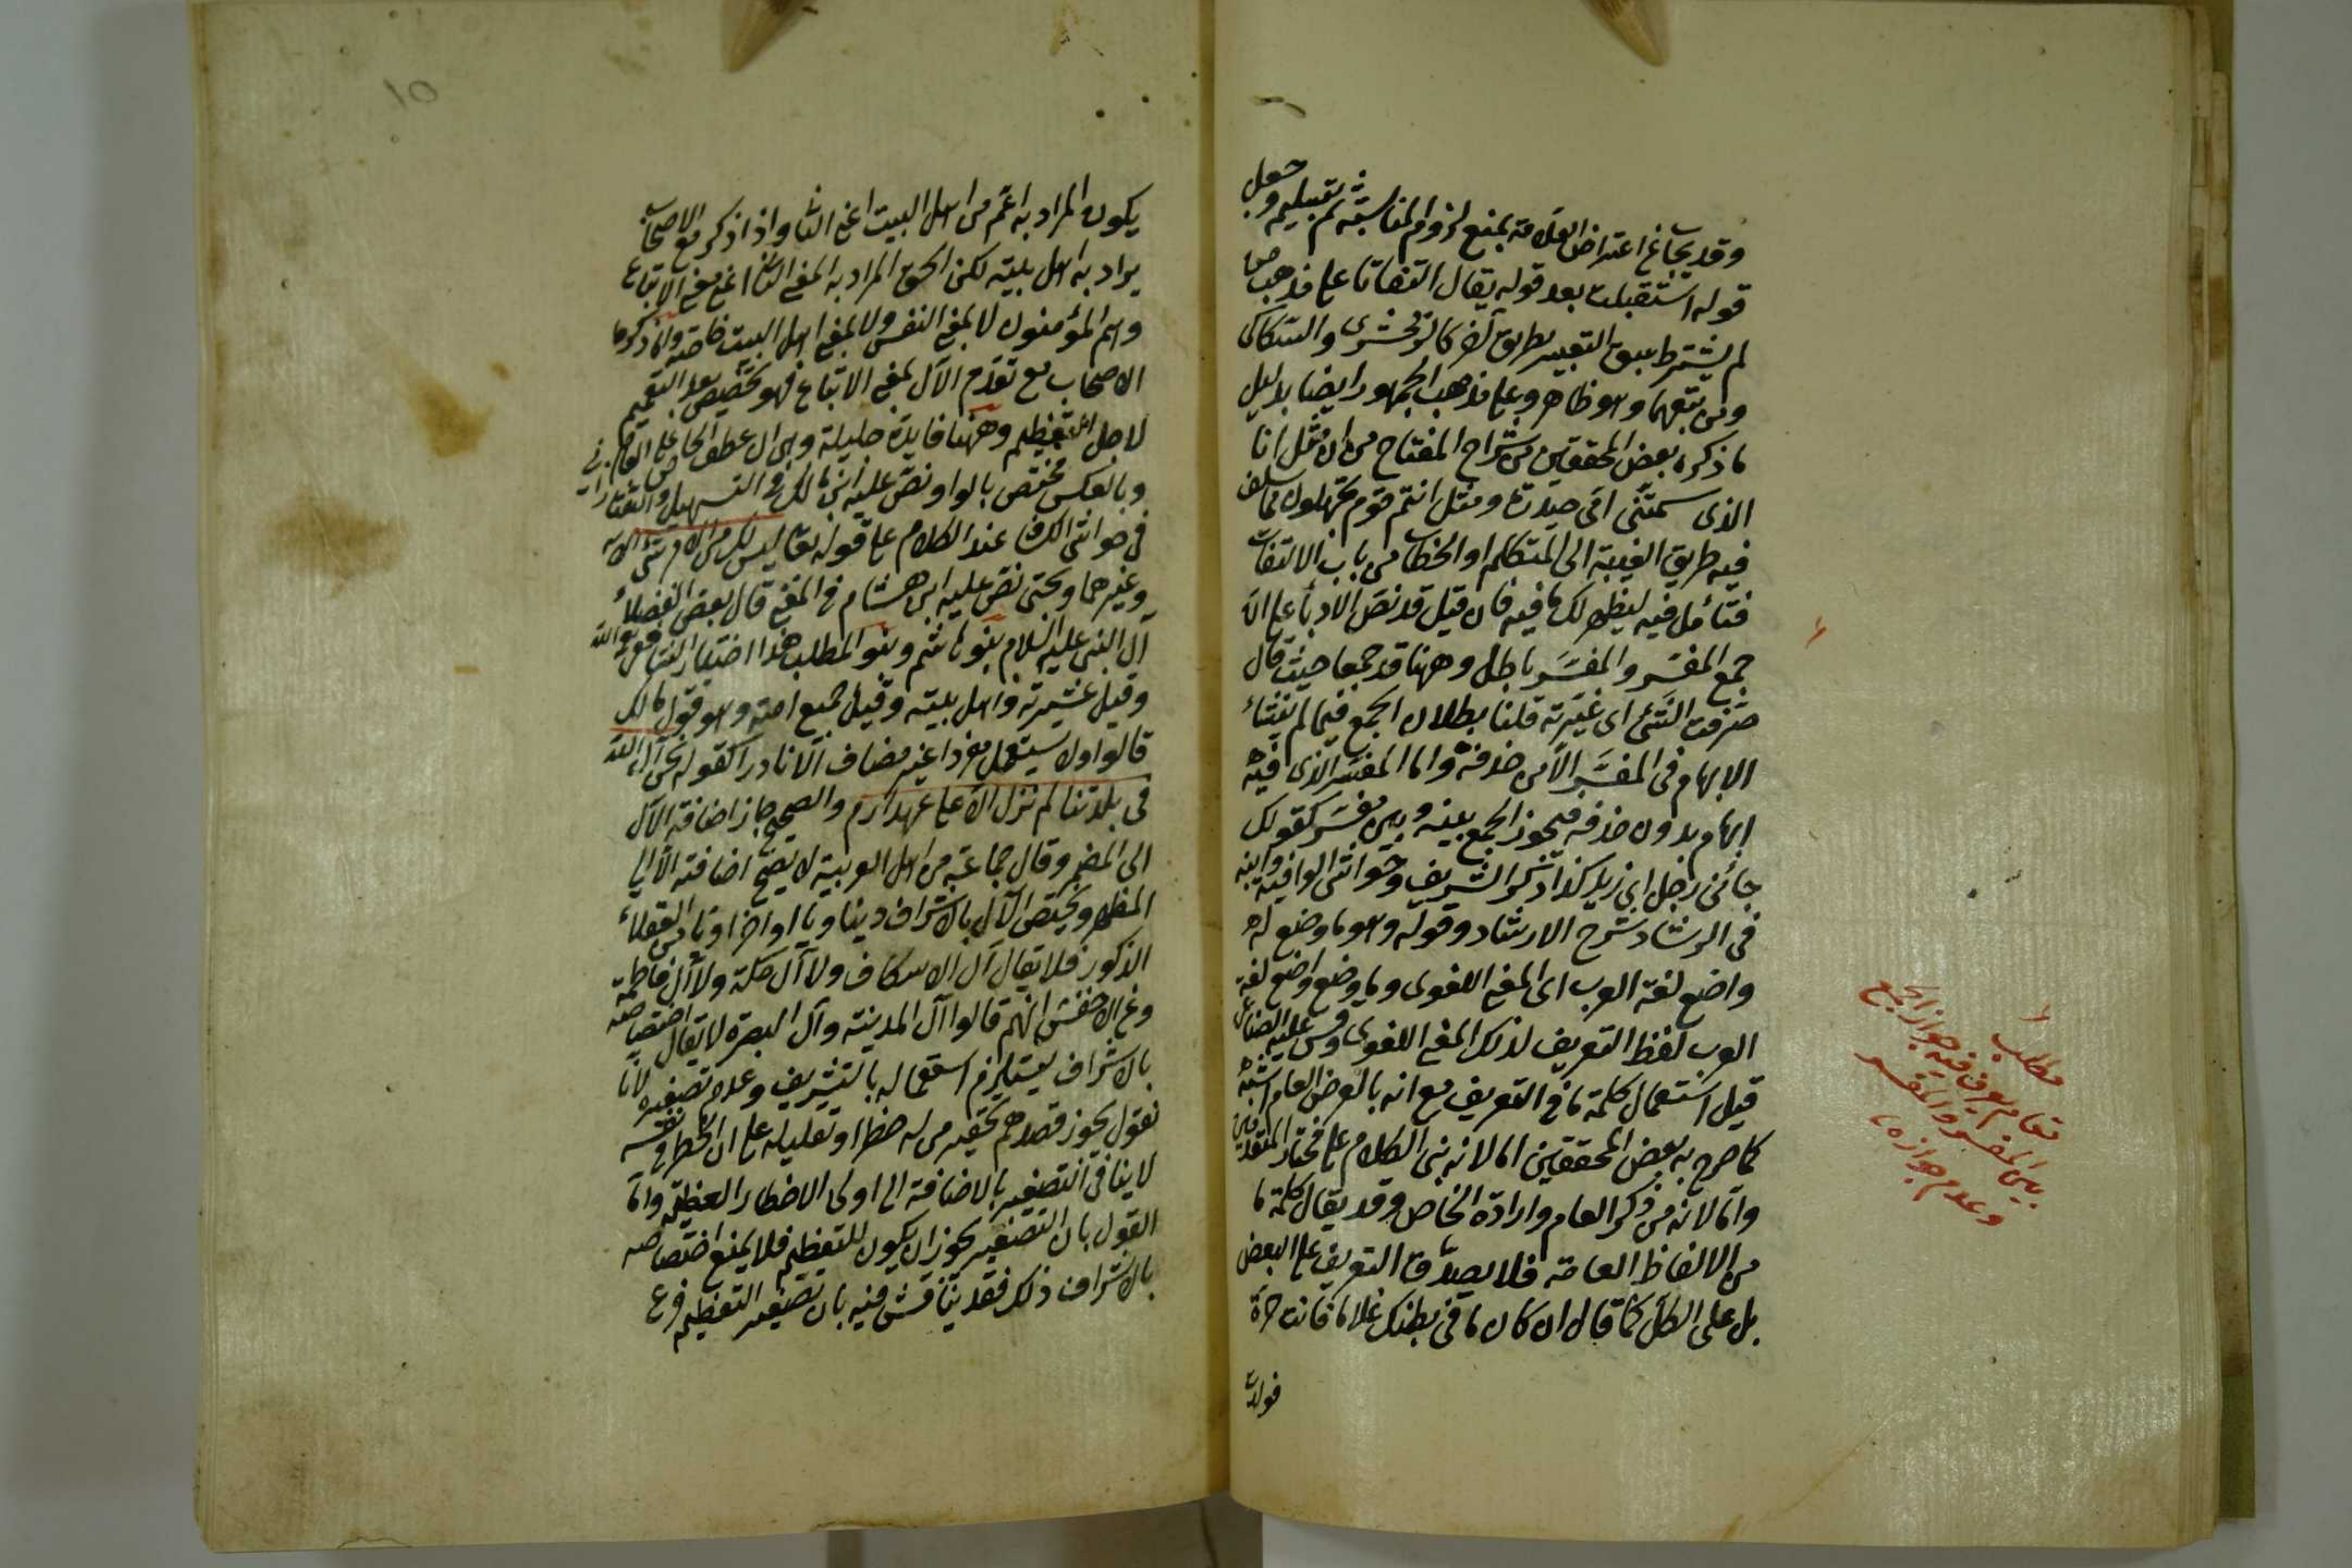 وقد يجاب عن اعتراض العلامة بمنع لزوم المناسبة ثم تمثيلهم وجعل
قوله استقبلت بعد قوله يقال التفاتا على مذهب من
لم يشترط سبق التعبير بطريق آخر كالزمخشرى والسكاكى
ومن تبعهما وهو ظاهر وعلى مذهب الجمهور ايضا بدليل
ما ذكره بعض المحققين من شراح المفتاح من ان مثل انا
الذى سمتنى امى حيدرة ومثل انتم قوم تجهلون مما سلف
فيه طريق الغيبة الى المتكلم او الخطاب من باب الالتفات
فتأمل فيه ليظهر لك ما فيه فان قيل قد نص الادبأ على ان
جمع المفسر والمفسر باطل وههنا قد جمعا حيث قال
صرفت الشئ اى غيرته قلنا بطلان الجمع فيما لم ينشأ
الابهام فى المفسر الا من حذفه واما المفسر الذى فيه
ابهام بدون حذفه فيجوز الجمع بينه وبين مفسر كقولك
جائنى رجل اى زيد كذا ذكر الشريف وحواشى الوافية وابنه
فى الرشاد شرح الارشاد وقوله وهو ما وضع له
واضع لغة العرب اى المعنى اللغوى وما وضع واضع لغة
العرب لفظ التعريف لذلك المعنى اللغوى وقس عليه الصناعى
قيل استعمال كلمة ما فى التعريف مع انه بالعرض العام اشبه
كما صرح به بعض المحققين اما لانه بنى الكلام على مختار المتقدمين
واما لانه من ذكر العام وارادة الخاص وقد يقال كلمة ما
من الالفاظ العامة فلا يصدق التعريف على البعض
بل على الكل كما قال ان كان ما فى بطنك غلاما فانت حرة
فولدت
مطلب
مقام يعرف فيه جواز الجمع
بين المفسر والمفسر
وعدم جوازه
١٥
يكون المراد به اعم من اهل البيت اعنى الثانى واذا ذكر مع الاصحاب
يراد به اهل بيته لكن الحق المراد به المعنى الثانى اعنى معنى الاتباع
وهم المؤمنون لا بمعنى النفس ولا بمعنى اهل البيت خاصة وان ذكروا
الاصحاب مع تقدم الآل بمعنى الاتباع فهو تخصيص بعد التعميم
لاجل التعظيم وههنا فايدة جليلة وهى ان عطف الخاص على العام
وبالعكس مختص بالواو نص عليه ابن مالك فى التسهيل والتفتازانى
فى حواشى الكشاف عند الكلام على قوله تعالى ليس لك من الامر شئ الآية
وغيرهما وبحتى نص عليه ابن هشام فى المغنى قال بعض الفضلاء
آل النبى عليه السلام بنو هاشم وبنو المطلب هذا اختيار الشافعى رحمه الله
وقيل عشيرته واهل بيته وقيل جميع امته وهو قول مالك
قالوا ولا يستعمل مفردا غير مضاف الا نادرا كقوله نحن آل الله
فى بلدتنا لم نزل الا على عهد ارم والصحيح جاز اضافة الآل
الى المضمر وقال جماعة من اهل العربية لا يصح اضافته الا الى
المظهر ويختص الآل بالاشراف دينا ودنيا او اخرا وبالعقلاء
الذكور فلا يقال آل الاسكاف ولا آل مكة ولا آل فاطمة
وعن الاخفش انهم قالوا آل المدينة وآل البصرة لا يقال اختصاصه
بالاشراف يستلزم استعماله بالتشريف وعدم تصغيره لانا
نقول يجوز قصدهم تحقير من له خطرا وتقليله على ان الخطر فى نفسه
لا ينافى التصغير بالاضافة الى اولى الاخطار العظيمة واما
القول بان التصغير يجوز ان يكون للتعظيم فلا يمنع اختصاصه
بالاشراف ذلك فقد يناقش فيه بان تصغير التعظيم فرع